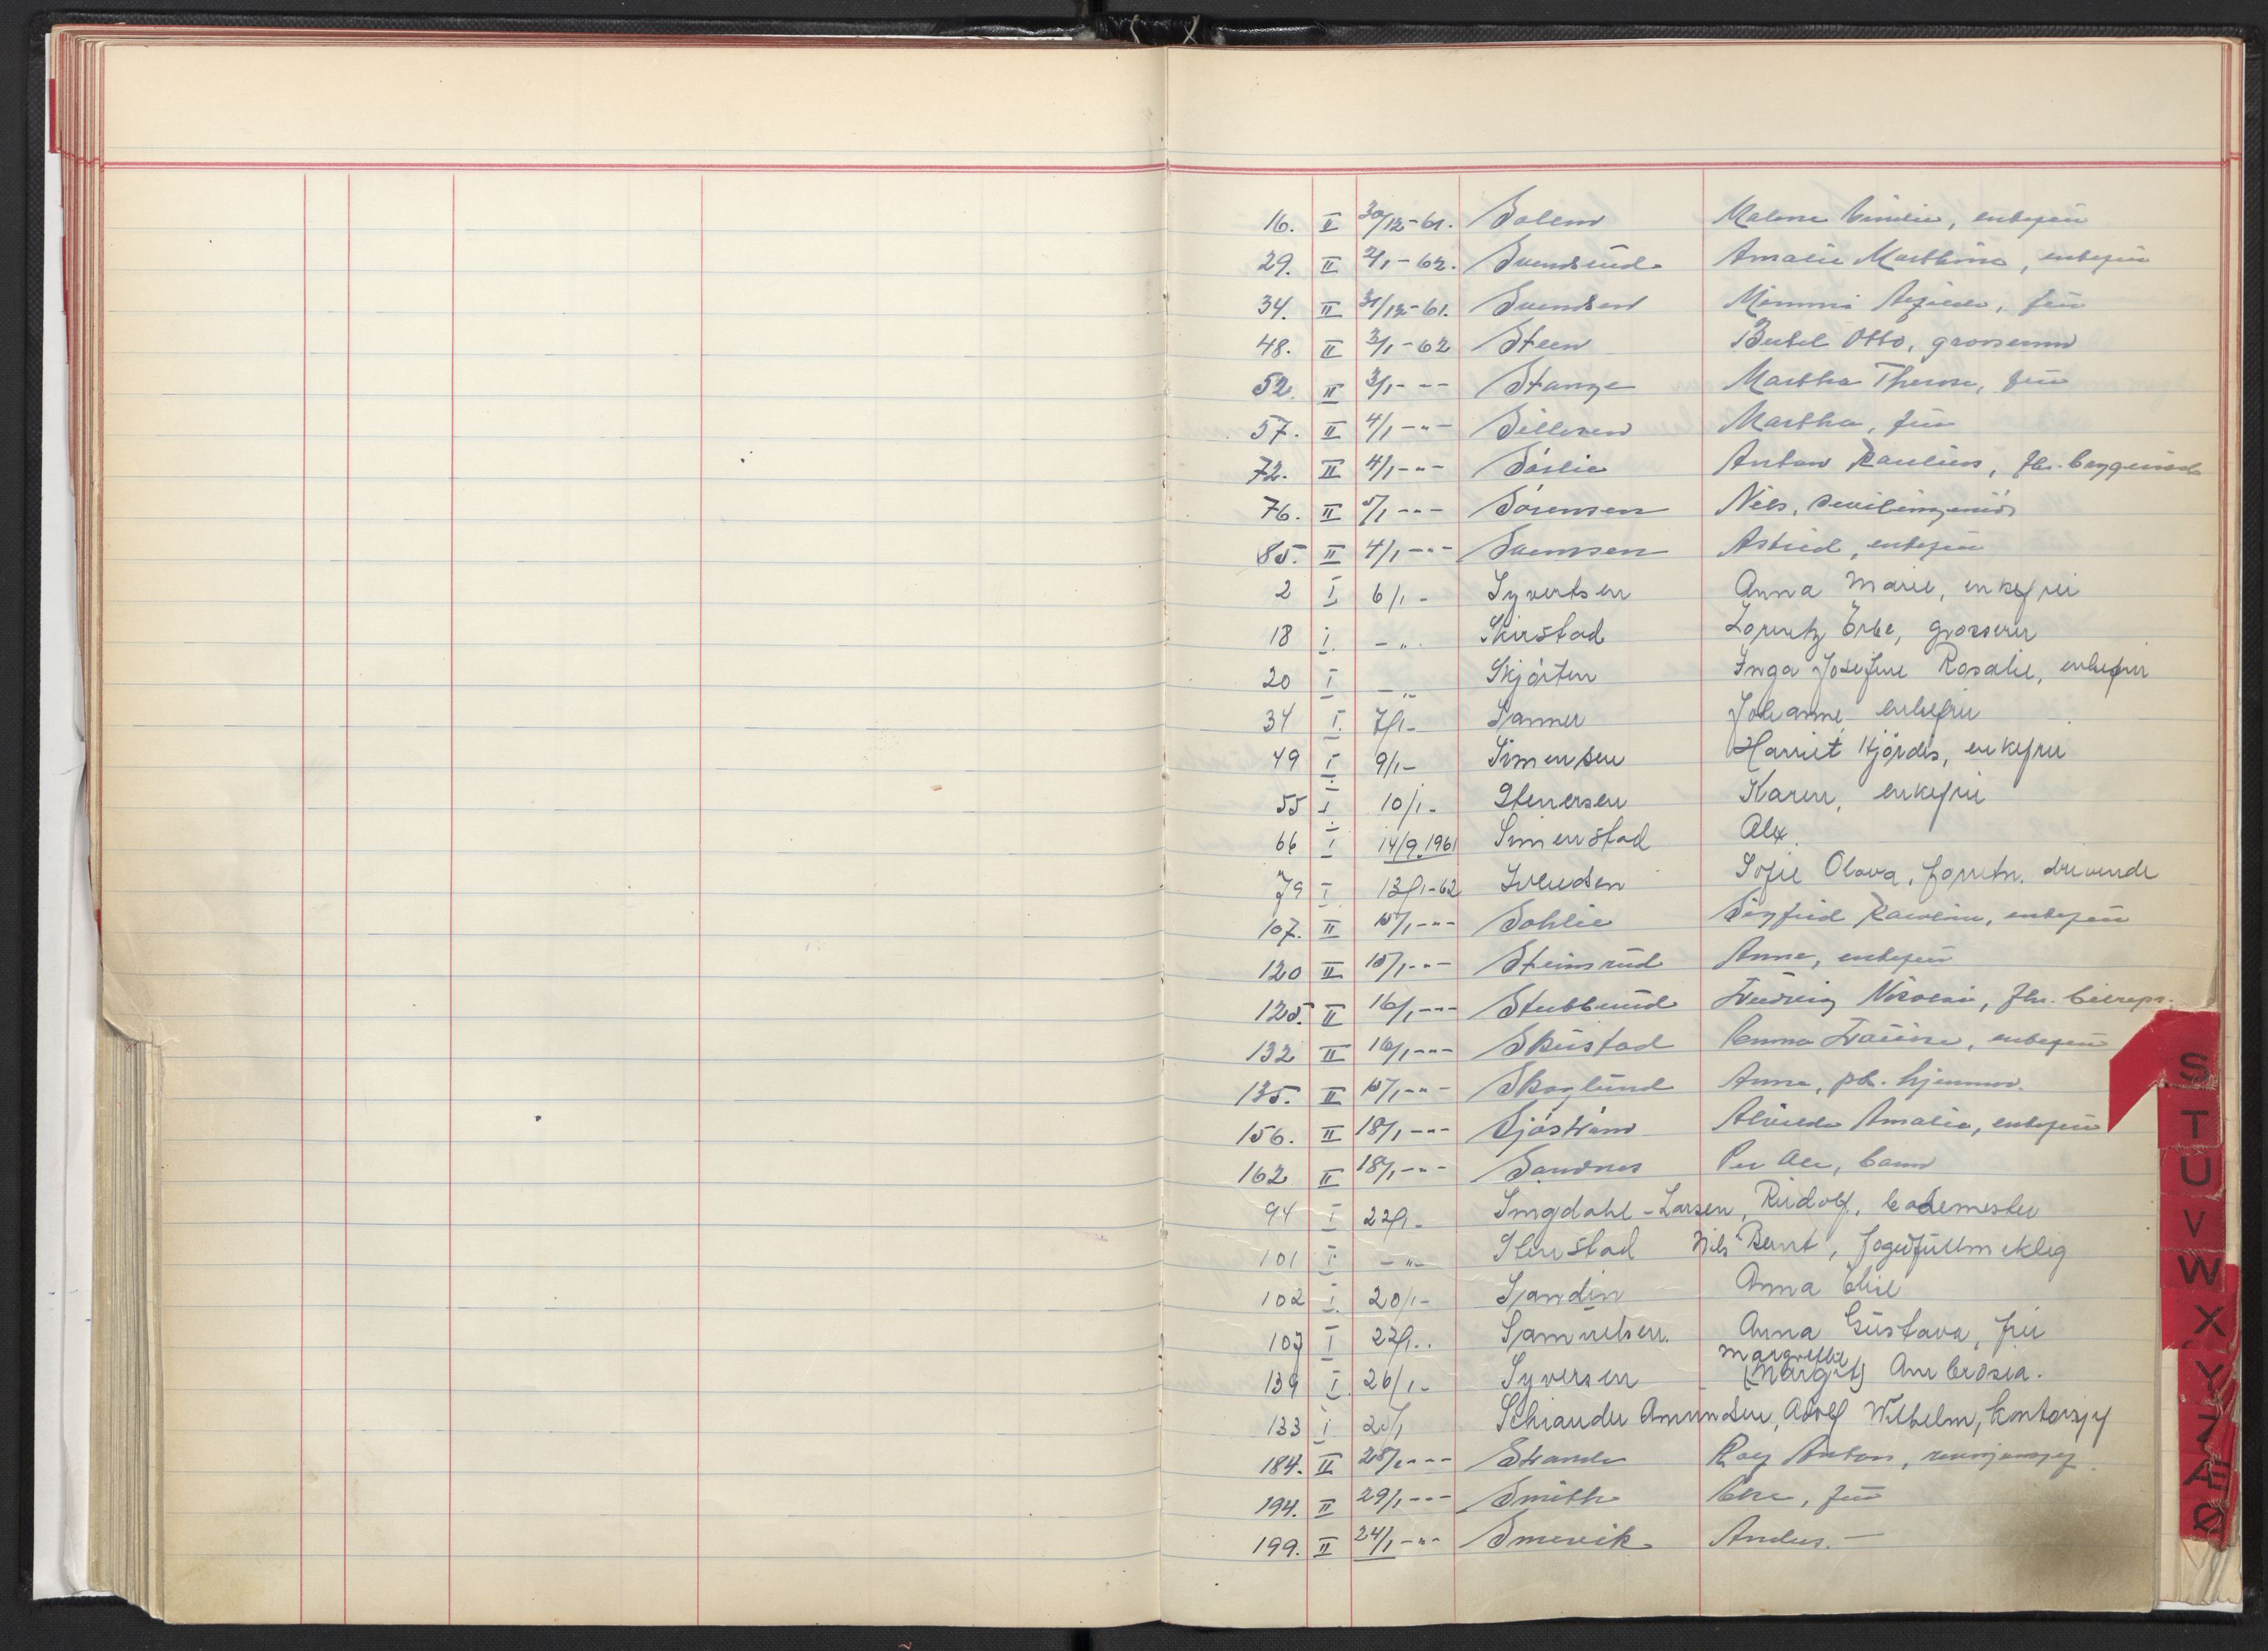 16. II 30/12-61. Solem Malene Emilie, enkefru
29. II 2/1-62. Svendsrud Amalie Marthine, enkefru
34. II 31/12-61. Svendsen Mimmi, fru
48. II 3/1-62 Steen Bertel Otto, grosserer
52. II 3/1- -"- Stange Martha Therese, fru
57. II 4/1 -"- Sillesen Martha, fru
72. II 4/1 -"- Sörlie Anton Paulius, fhv.
76. II 5/1 -"- Sörensen Nils, sivilingeniör
85. II 4/1 -"- Svenssen Astrid, enkefru
2 I 6/1- Syvertsen Anna Marie, enkefru
18 I. -"- Skirstad Lorentz, grosserer
20 I -"- Skjörten Inga Josefine Rosalie, enkefru
34 I. 7/1- Sanner Johanne enkefru
49 I 9/1- Simensen Harriet Hjördis, enkefru
55 I 10/1- Stenersen Karen, enkefru
66 I 14/9.1961 Simenstad Alex.
79 I 13/1-62 Svendsen Sofie Olava, forretn. drivende
107. II 15/1 -"- Sohlie Sigfrid Karoline, enkefru
120 II 15/1 -"- Steinsrud Anna, enkefru
125. II 16/1 -"- Stubberud Ludvig Nicolai, fhv.
132 II 16/1 -"- Skustad Emma Lovise, enkefru
135. II 15/1 -"- Skoglund Anna, pl. hjemmet
156. II 18/1 -"- Sjöström Alvilde Amalie, enkefru
162 II 18/1 -"- Sandnes Per, barn
94 I 22/1- Smgdahl-Larsen, Rudolf, bademester
101 I -"- Stenstad Nils Bernt, fogdfullmektig
102 I. 20/1- Sandin Anna Elise
107 I 22/1.. Samuelsen. Anna Gustava, fru
Margrethe
139 I. 26/1- Syversen (Margit) Ambrosia.
133 I 25/1 Schiander Amundsen, Adolf Wilhelm, kontorsjef
184. II 28/1 -"- Strande Roy Anton,
194. II 29/1 -"- Smith Else, fru
199. II 24/1 -"- Smevik Anders. —
S
T
U
V
W
X
Y
Z
Æ
Ø